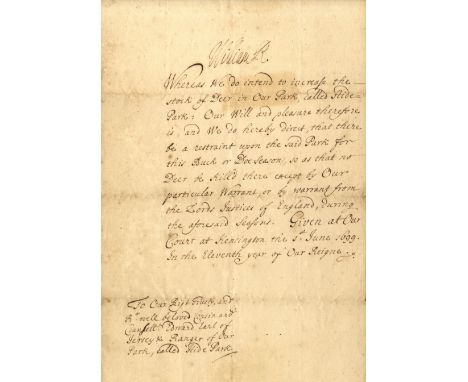 William R
Whereas We do intend to increase the
stock of Deer in Our Park called Hide
Park: Our Will and pleasure therefore
is, and We do hereby direct, that there
be a restraint upon the said Park for
this Buck or Doe Season, so as that no
Deer be kill'd there except by Our
particular Warrant, or by warrant from
the Lords Justices of England, during
the aforesaid Seasons. Given at Our
Court at Kensington the 1st June 1699.
In the Eleventh year of Our Reigne.
To Our Right Trusty and
Rt. well beloved Cousin and
Councellr. Edward Earl of
Jersey & Ranger of Our
Park, called Hide Park.